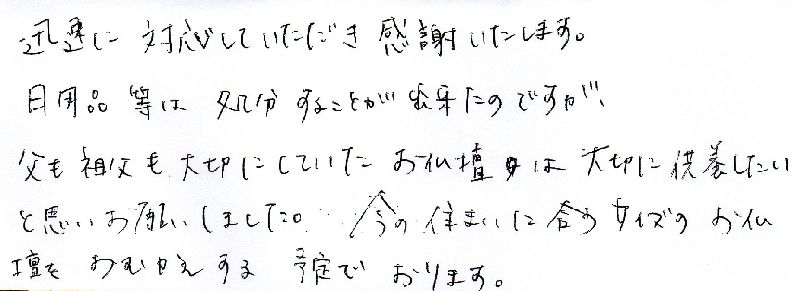 迅速に対応していただき感謝いたします。
日用品等は処分することが出来たのですが、
父も祖父も大切にしていたお仏壇は大切に供養したい
と思いお願いしました。今の住まいに合うサイズのお仏
壇をおむかえする予定であります。